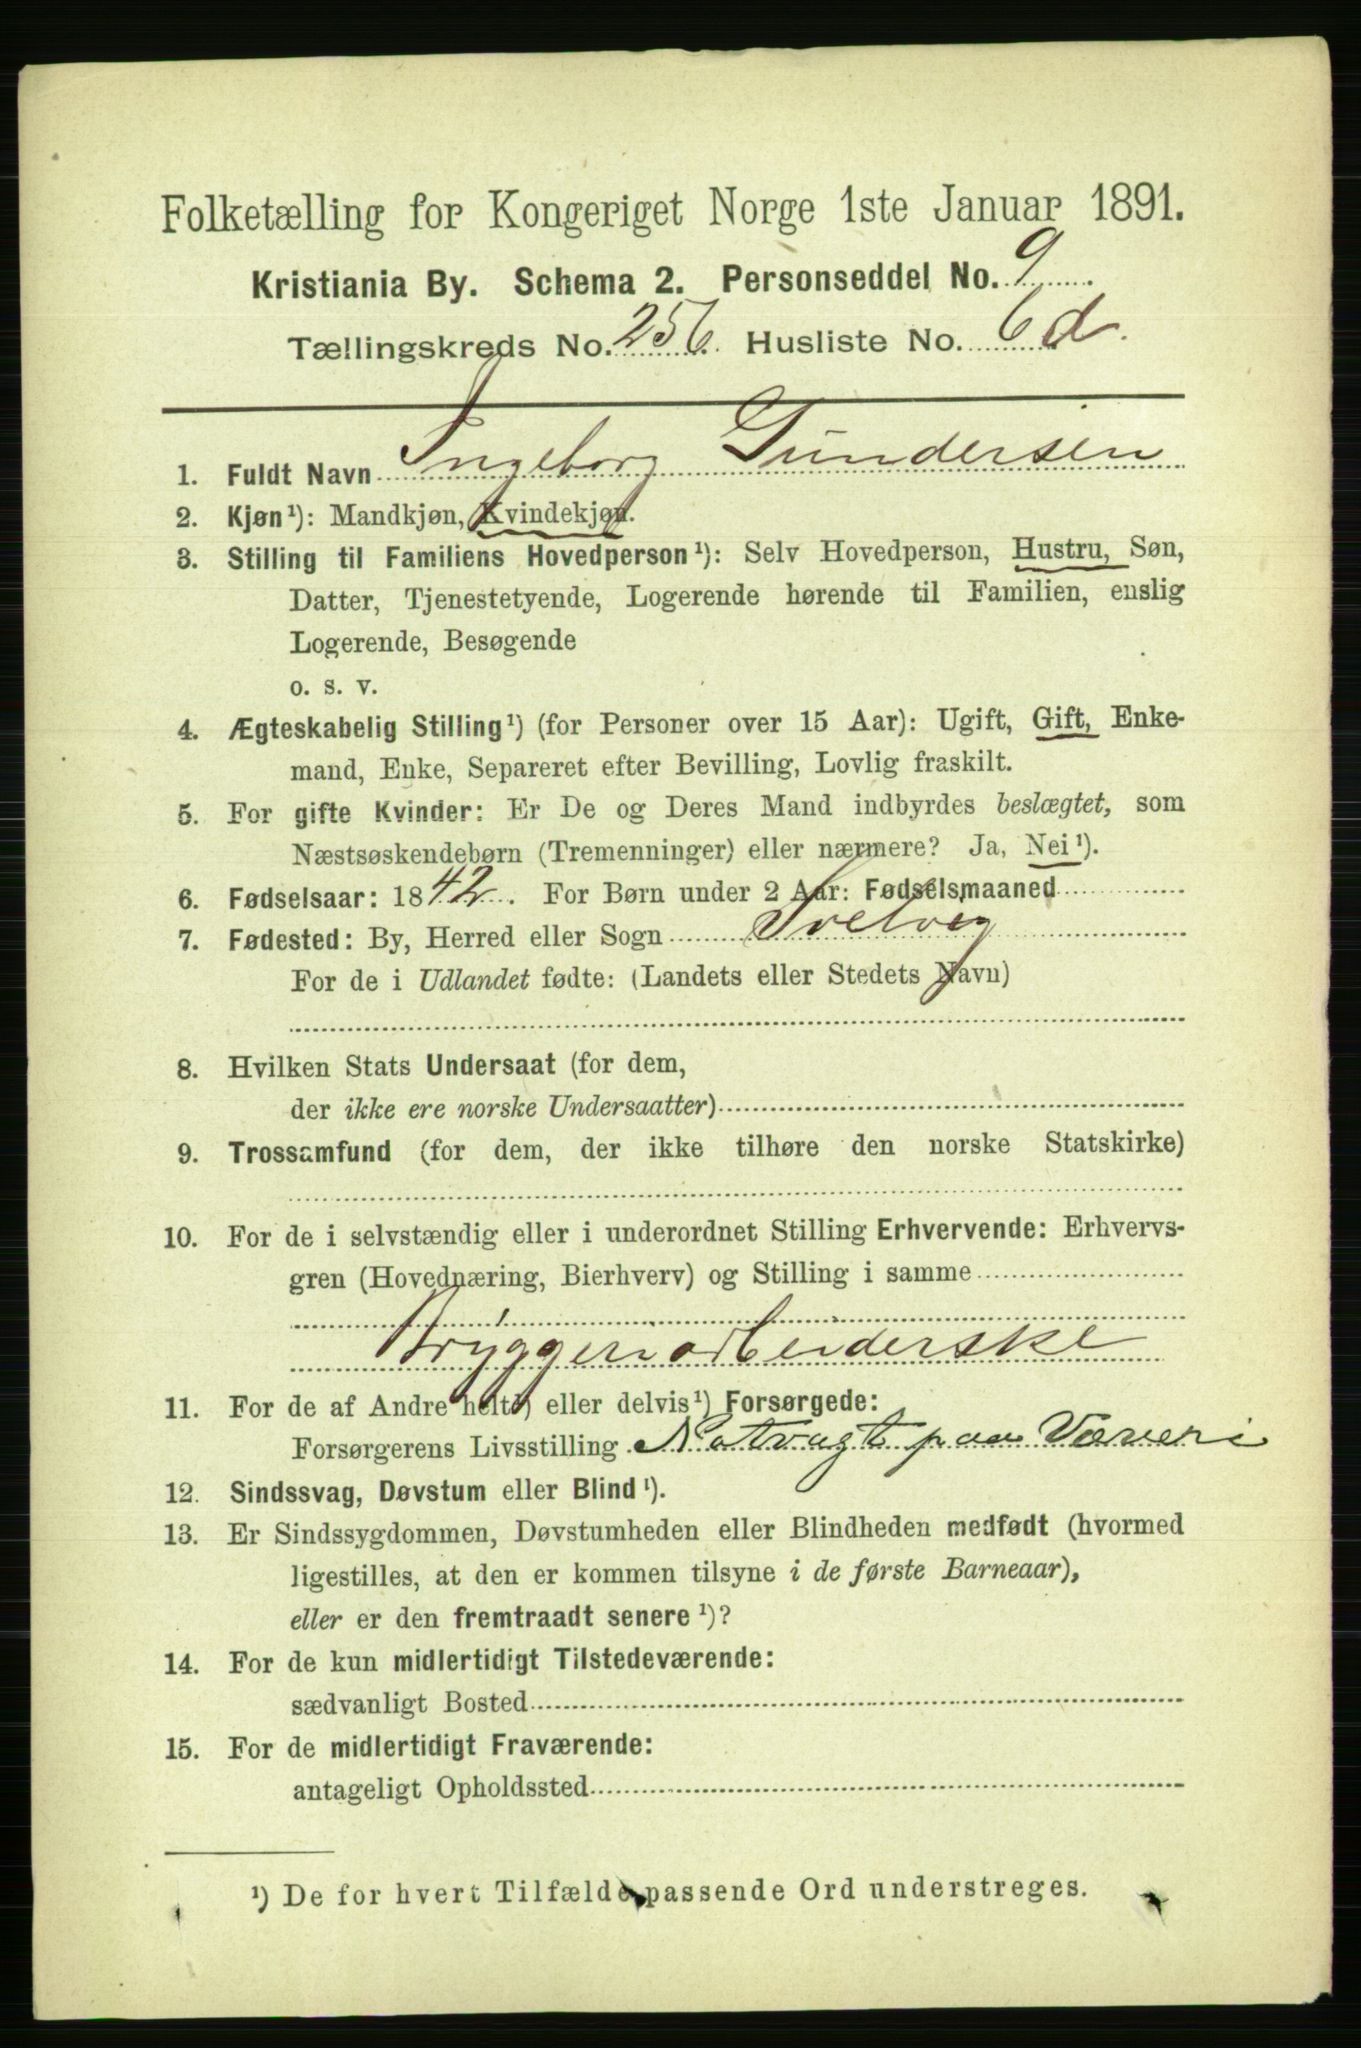 Folketælling for Kongeriget Norge 1ste Januar 1891.
Kristiania By. Schema 2. Personseddel No. 9
Tællingskreds No. 256. Husliste No. 6d.
1. Fuldt Navn Ingeborg Gundersen
2. Kjøn¹): Mandkjøn, Kvindekjøn.
3. Stilling til Familiens Hovedperson¹): Selv Hovedperson, Hustru, Søn,
Datter, Tjenestetyende, Logerende hørende til Familien, enslig
Logerende, Besøgende
o. s. v.
4. Ægteskabelig Stilling¹) (for Personer over 15 Aar): Ugift, Gift, Enke-
mand, Enke, Separeret efter Bevilling, Lovlig fraskilt.
5. For gifte Kvinder: Er De og Deres Mand indbyrdes beslægtet, som
Næstsøskendebørn (Tremenninger) eller nærmere? Ja, Nei¹).
6. Fødselsaar: 1842. For Børn under 2 Aar: Fødselsmaaned
7. Fødested: By, Herred eller Sogn Svelvig
For de i Udlandet fødte: (Landets eller Stedets Navn)
8. Hvilken Stats Undersaat (for dem,
der ikke ere norske Undersaatter)
9. Trossamfund (for dem, der ikke tilhøre den norske Statskirke)
10. For de i selvstændig eller i underordnet Stilling Erhvervende: Erhvervs-
gren (Hovednæring, Bierhverv) og Stilling i samme
Bryggeriarbeiderske
11. For de af Andre helt¹) eller delvis¹) Forsørgede:
Forsørgerens Livsstilling Natvagt paa Væveri
12. Sindssvag, Døvstum eller Blind¹).
13. Er Sindssygdommen, Døvstumheden eller Blindheden medfødt (hvormed
ligestilles, at den er kommen tilsyne i de første Barneaar),
eller er den fremtraadt senere¹)?
14. For de kun midlertidigt Tilstedeværende:
sædvanligt Bosted
15. For de midlertidigt Fraværende:
antageligt Opholdssted
¹) De for hvert Tilfælde passende Ord understreges.